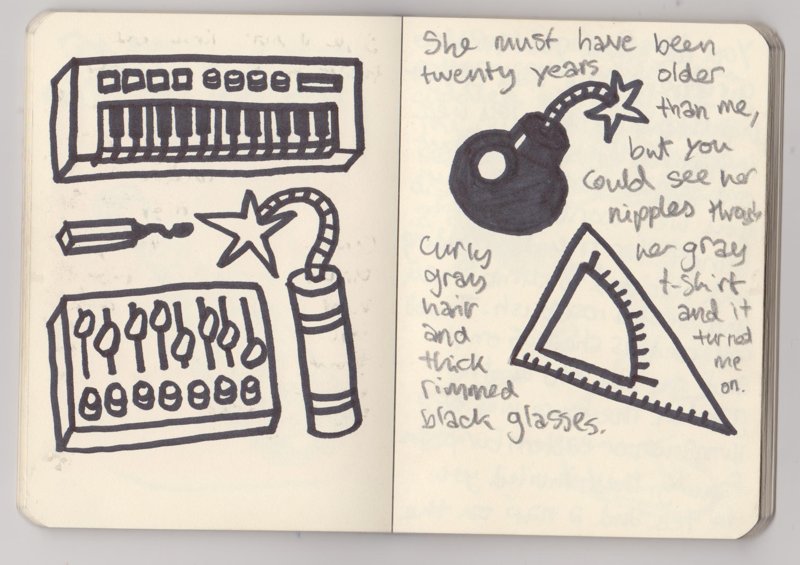 She must have been
twenty years older
than me,
but you
could see her
nipples through
her gray
t-shirt
and it
turned
me
on.
curly
gray
hair
and
thick
rimmed
black glasses.